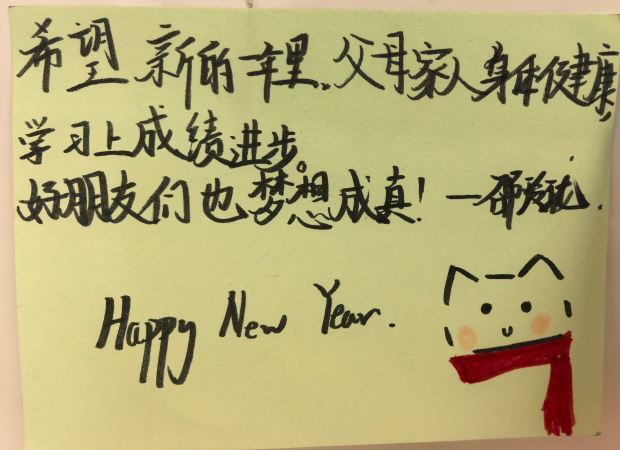 希望新的一年里，父母家人身体健康，
学习上成绩进步。
好朋友们也梦想成真！—邵
Happy New Year.